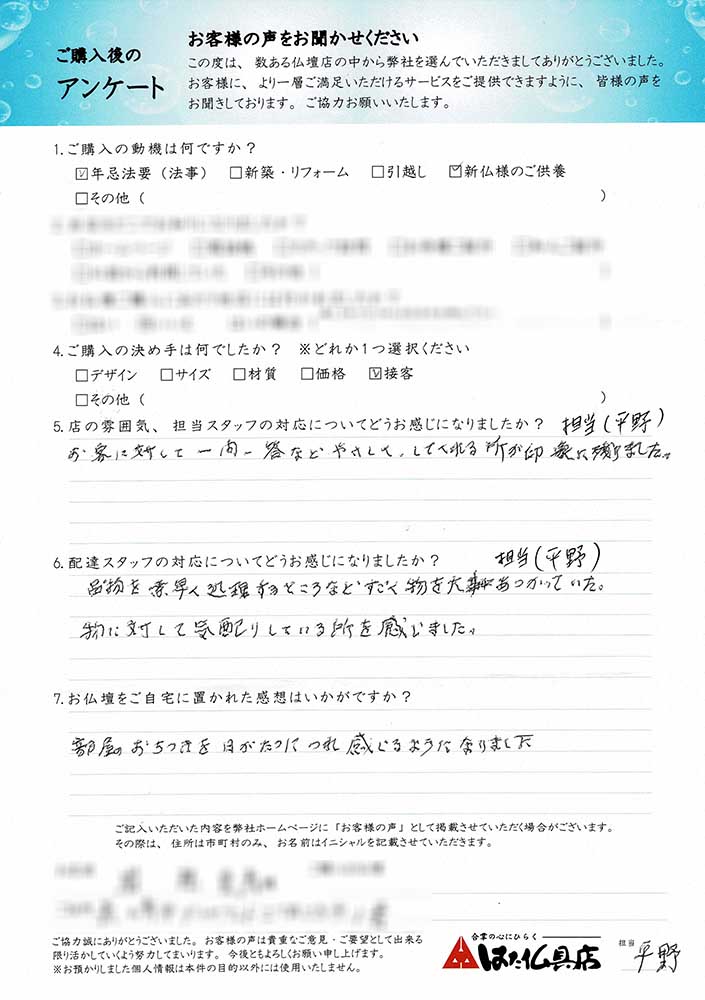 ご購入後の
アンケート
お客様の声をお聞かせください
この度は、数ある仏壇店の中から弊社を選んでいただきましてありがとうございました。
お客様に、より一層ご満足いただけるサービスをご提供できますように、皆様の声を
お聞きしております。ご協力お願いいたします。
1.ご購入の動機は何ですか？
☑年忌法要（法事） □新築・リフォーム □引越し ☑新仏様のご供養
□その他（ ）
4.ご購入の決め手は何でしたか？ ※どれか1つ選択ください
□デザイン □サイズ □材質 □価格 ☑接客
□その他（ ）
5.店の雰囲気、担当スタッフの対応についてどうお感じになりましたか？ 担当(平野)
お客に対して一問一答などやさしく、してくれる所が印象に残りました。
6.配達スタッフの対応についてどうお感じになりましたか？ 担当(平野)
品物を素早く処理するところなどすごく物を大事にあつかっていた。
物に対して気配りしている所を感じました。
7.お仏壇をご自宅に置かれた感想はいかがですか？
部屋のおちつきを日がたつにつれ感じるようになりました
ご記入いただいた内容を弊社ホームページに「お客様の声」として掲載させていただく場合がございます。
その際は、住所は市町村のみ、お名前はイニシャルを記載させていただきます。
ご協力誠にありがとうございました。お客様の声は貴重なご意見・ご要望として出来る
限り活かしていくよう努力してまいります。今後ともよろしくお願い申し上げます。
※お預かりしました個人情報は本件の目的以外には使用いたしません。
合掌の心にひらく
はた仏具店
担当 平野